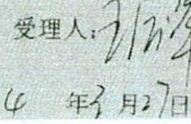 受理人:
4 年3月27日